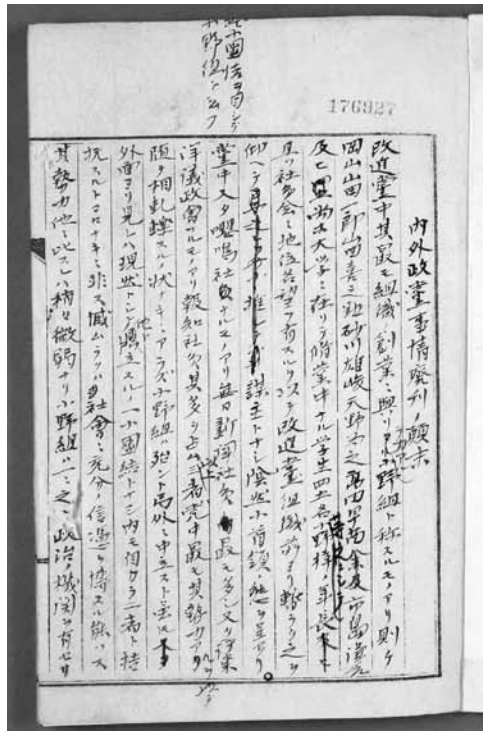 176927
内外政黨事情発刊ノ顛末
改進黨中其最モ組織ノ創業ニ與リ小野組ト称スルモノアリ則チ
岡山山田一郎山田喜之助砂川雄峻天野為之高田早苗余及市島謙吉
及ヒ尚ホ大学ニ在リテ脩業中ナル学生四五名小野梓ノ年長
且ツ社会ニ地位名望ヲ有スルヲ以テ改進黨組織前ヨリ暫ラク之ヲ
仰ヘテ推シテ謀主トナシ陰然小首領ノ態ヲ呈セリ
黨中又タ嚶鳴社員ナルモノアリ毎日新聞社員最モ多シ又タ東洋
洋議政會ナルモノアリ報知社員其多ヲ占ム三者党中最モ其勢力アリ
頗ル相軋轢スルノ状ナキニアラズ小野組ハ殆ント局外ニ中立スト雖
外面ヨリ見レハ現然トシテ特立スルノ一小團結トナシ内モ自カラ二者ト拮
抗スルトコロナキニ非ス憾ムラクハ社會ニ充分ノ信憑ヲ博スル能ハス
其勢力他ニ比スレハ稍々微弱ナリ小野組ハ一ニ之レ政治ノ機関ヲ有セサ